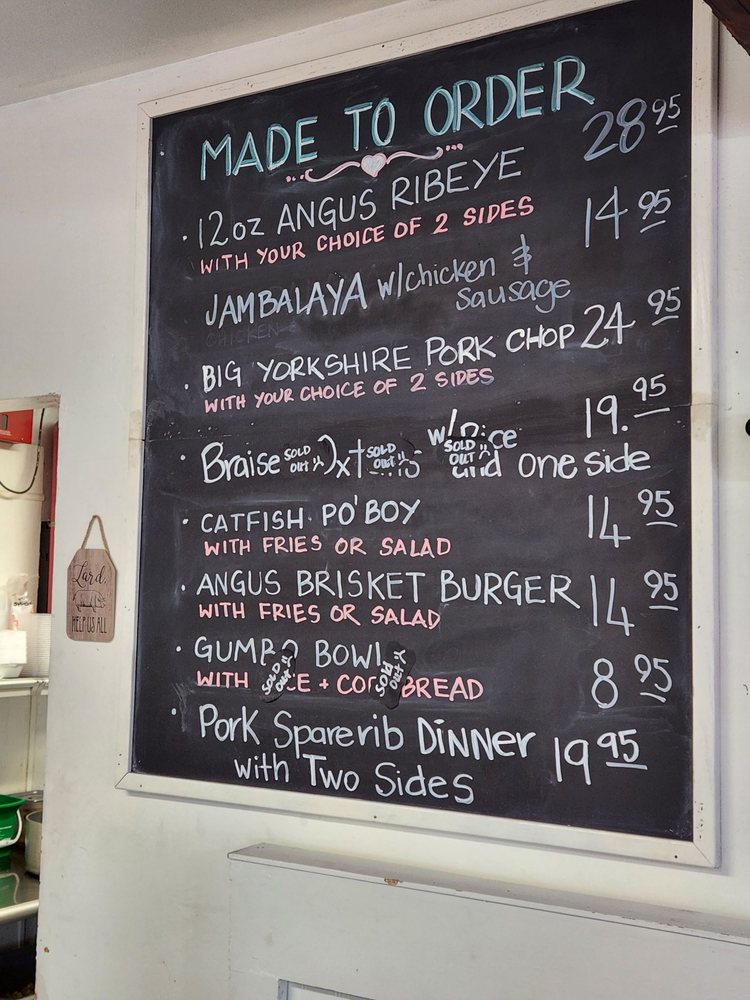 MADE TO ORDER
· 12oz ANGUS RIBEYE 28 95
WITH YOUR CHOICE OF 2 SIDES
JAMBALAYA w/chicken & 14 95
Sausage
CHICKEN
· BIG YORKSHIRE PORK CHOP 24 95
WITH YOUR CHOICE OF 2 SIDES
· Braise SOLD OUT SOLD OUT w/ SOLD OUT 19. 95
and one side
· CATFISH PO'BOY 14 95
WITH FRIES OR SALAD
· ANGUS BRISKET BURGER 14 95
WITH FRIES OR SALAD
· GUMBO BOWL 8 95
WITH SOLD OUT CE + CO Sold out BREAD
· Pork Sparerib DINNER 19 95
with Two Sides
Lard,
HELP US ALL